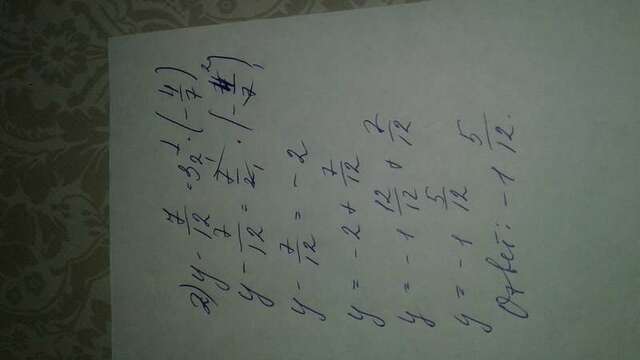 2) y - 7/12 = 3 1/2 · (- 4/7)
y - 7/12 = 7/2 · (- 4/7) 1 1 2 1
y - 7/12 = - 2
y = - 2 + 7/12
y = - 1 12/12 + 7/12
y = - 1 5/12
Ответ: - 1 5/12.